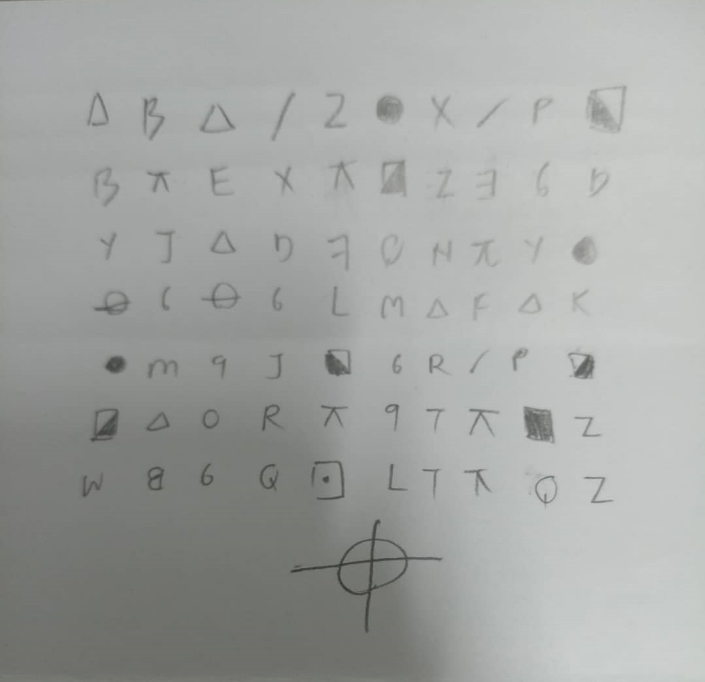 Δ B Δ / Z ● X / P ◣
B π E X π ◪ Z Ǝ 6 D
Y J Δ D ꟻ O N π Y ●
Ɵ 6 Ɵ 6 L M Δ F Δ K
● M 9 J ⬕ 6 R / P ◪
◪ Δ O R π 9 T π ■ Z
W 8 6 Q ⊡ L T π Q Z
⌖